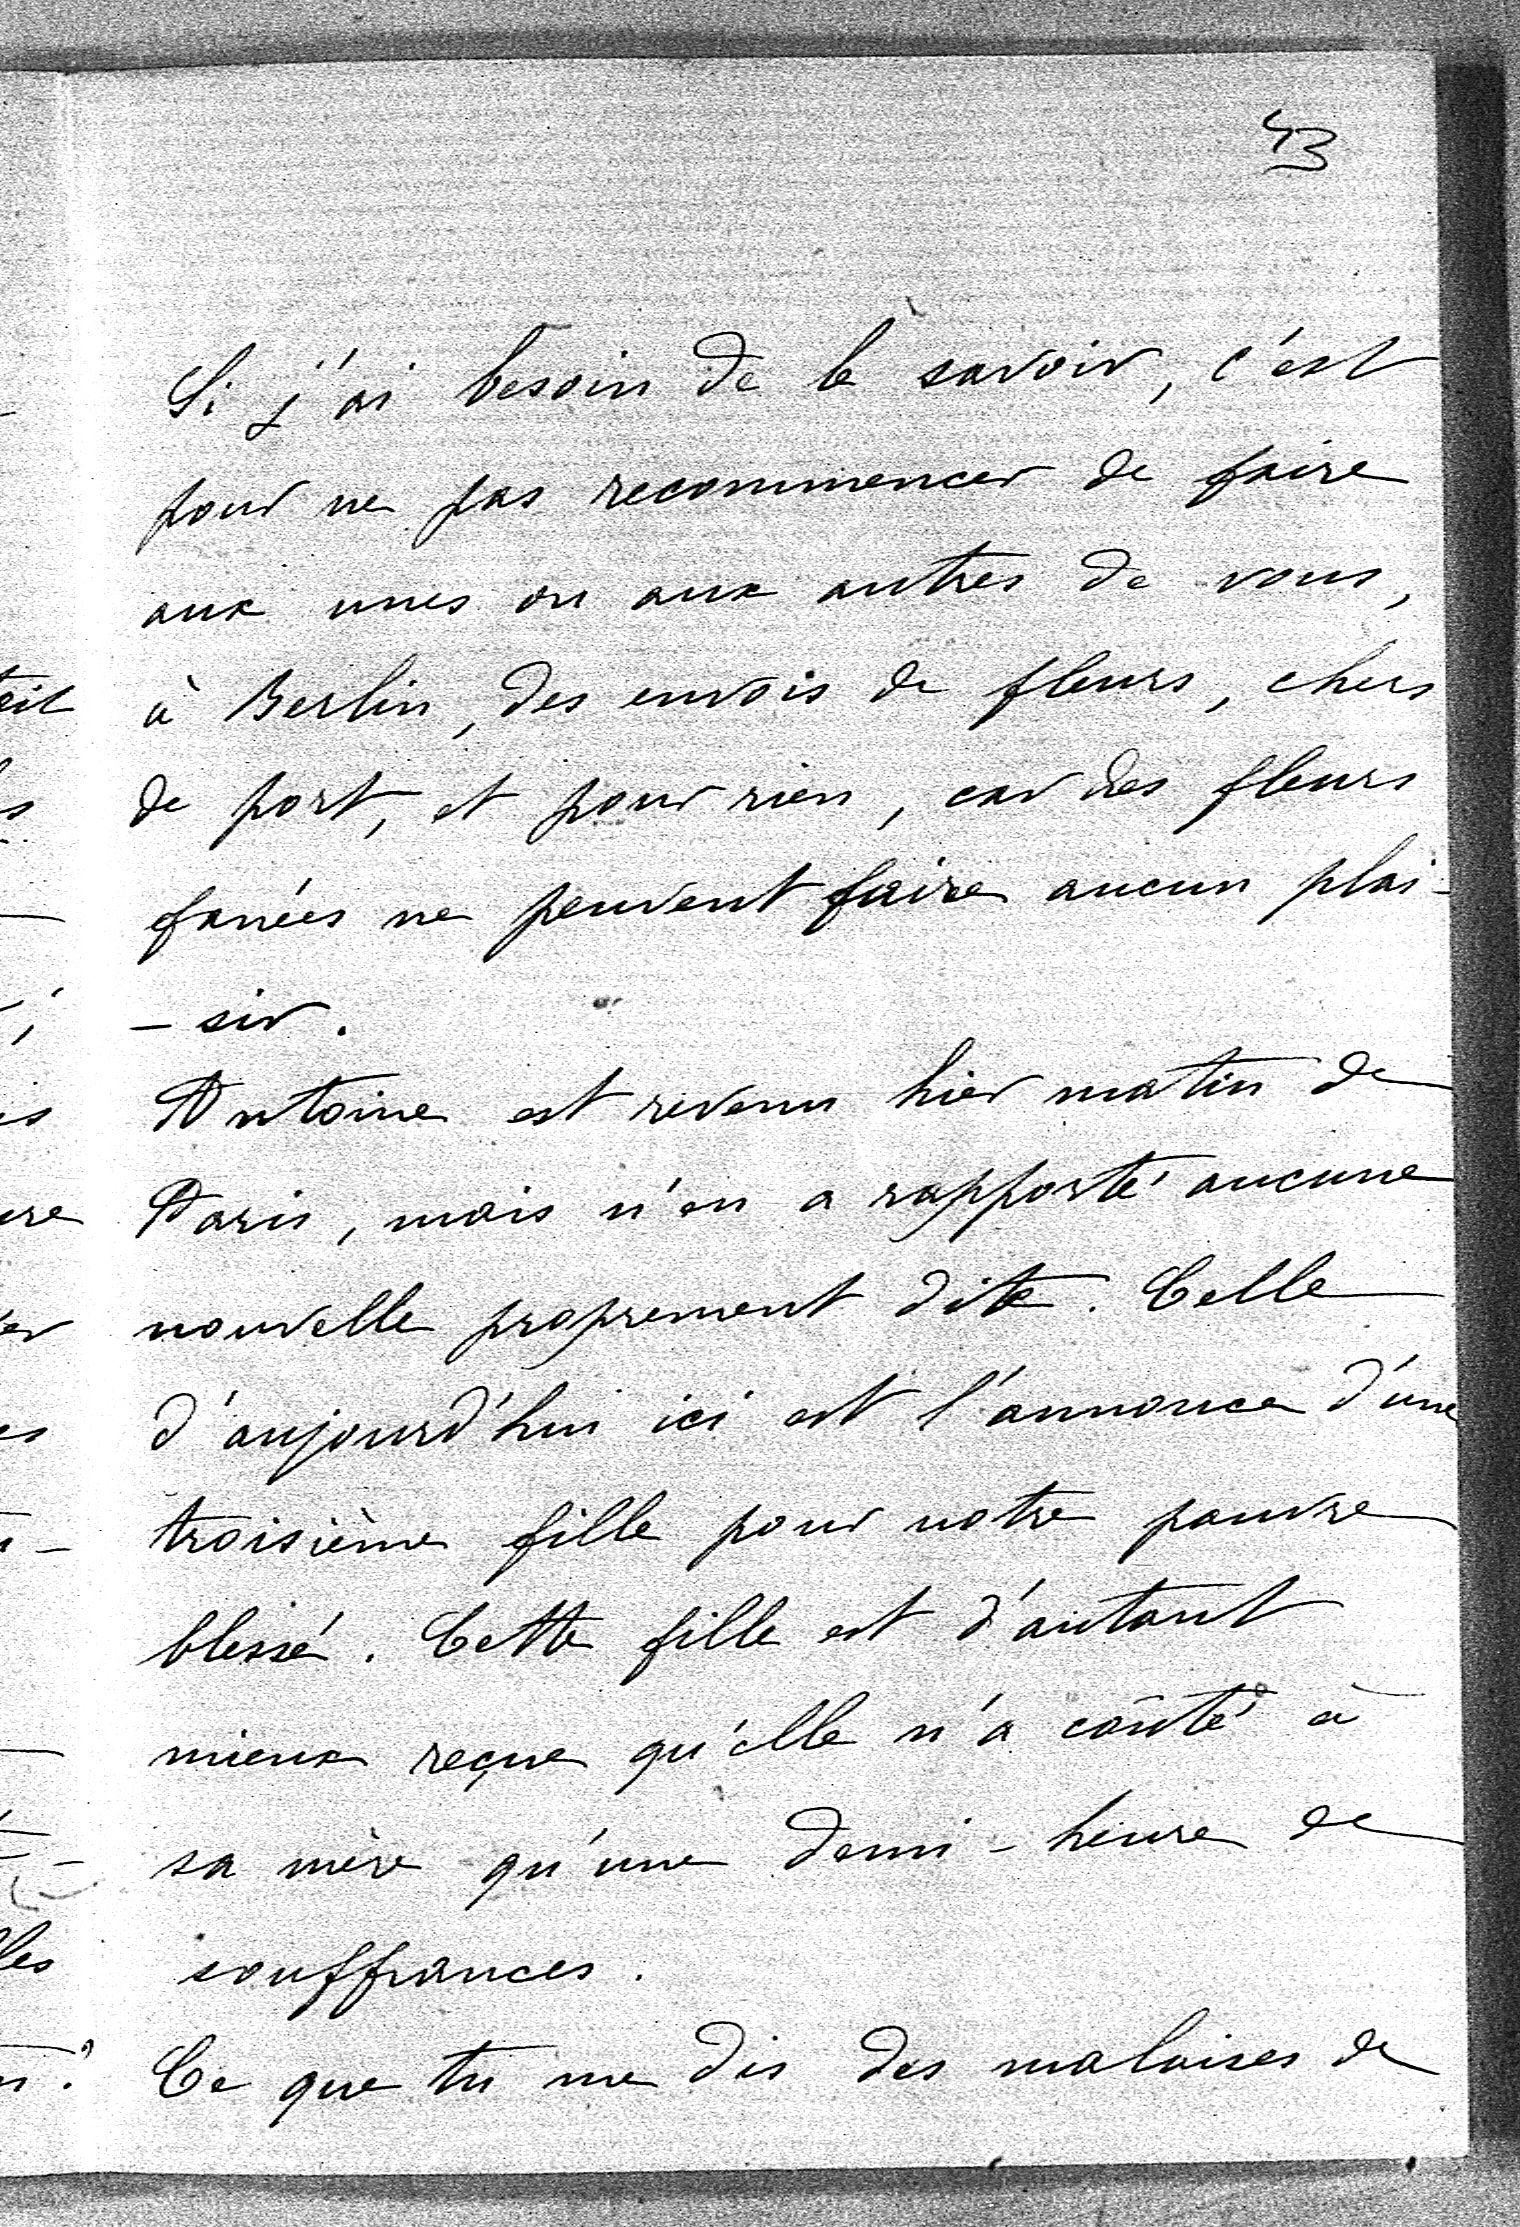 43
Si j'ai besoin de le savoir, c'est
pour ne pas recommencer de faire
aux unes ou aux autres de vous,
à Berlin, des envois de fleurs, chers
de port, et pour rien, car des fleurs
fanées ne peuvent faire aucun plai-
- sir.
Antoine est revenu hier matin de
Paris, mais n'en a rapporté aucune
nouvelle proprement dite. Celle
d'aujourd'hui ici est l'annonce d'une
troisième fille pour notre pauvre
blessé. Cette fille est d'autant
mieux reçue qu'elle n'a coûté à
sa mère qu'une demi-heure de
souffrances.
Ce que tu me dis des malaises de